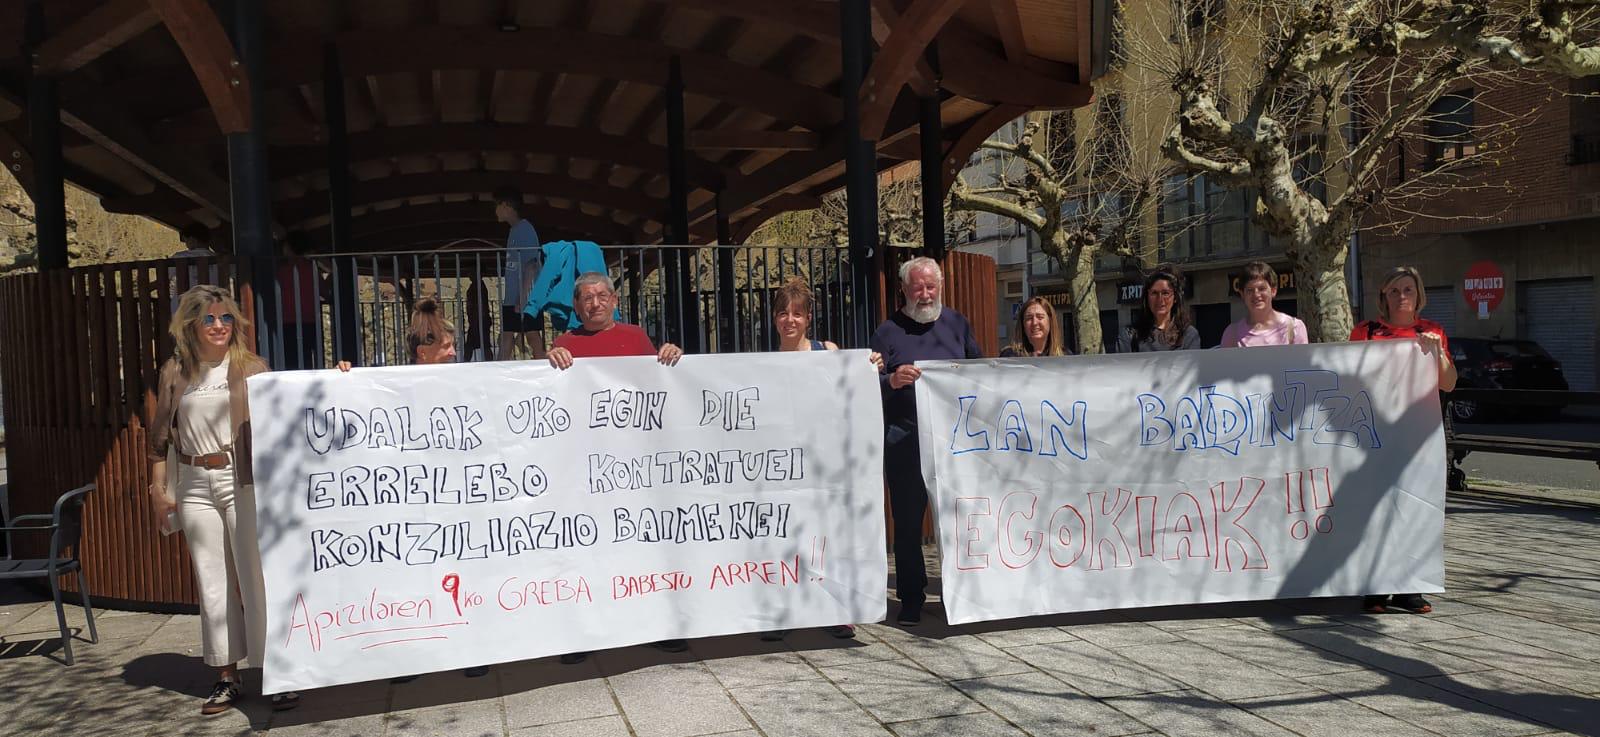 UDALAK UKO EGIN DIE
ERRELEBO KONTRATUEI
KONZILIAZIO BAIMENEI
Apirilaren 9ko GREBA BABESTU ARREN!!
LAN BALDINTZA
EGOKIAK!!